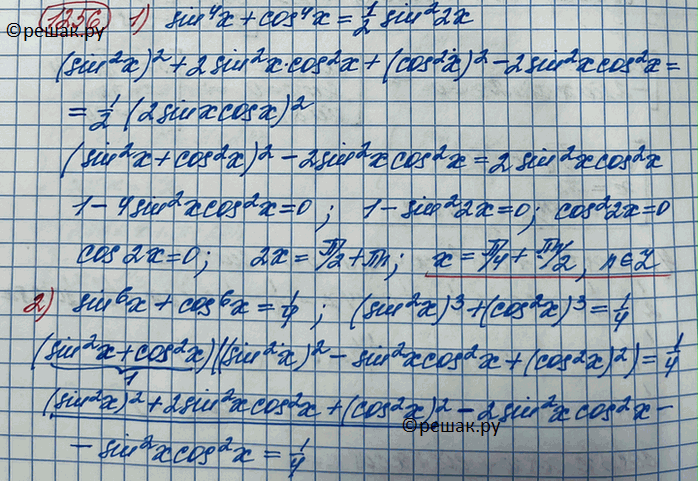 1236 1) sin⁴x + cos⁴x = 1/2 sin²2x
©решак.ру
(sin²x)² + 2sin²x·cos²x + (cos²x)² - 2sin²xcos²x =
= 1/2 (2sinxcosx)²
(sin²x + cos²x)² - 2sin²xcos²x = 2sin²xcos²x
1 - 4sin²xcos²x = 0 ; 1 - sin²2x = 0 ; cos²2x = 0
cos2x = 0 ; 2x = π/2 + πn ; x = π/4 + πn/2, n∈Z
2) sin⁶x + cos⁶x = 1/4 ; (sin²x)³ + (cos²x)³ = 1/4
(sin²x + cos²x)((sin²x)² - sin²xcos²x + (cos²x)²) = 1/4
1
(sin²x)² + 2sin²xcos²x + (cos²x)² - 2sin²xcos²x -
©решак.ру
- sin²xcos²x = 1/4